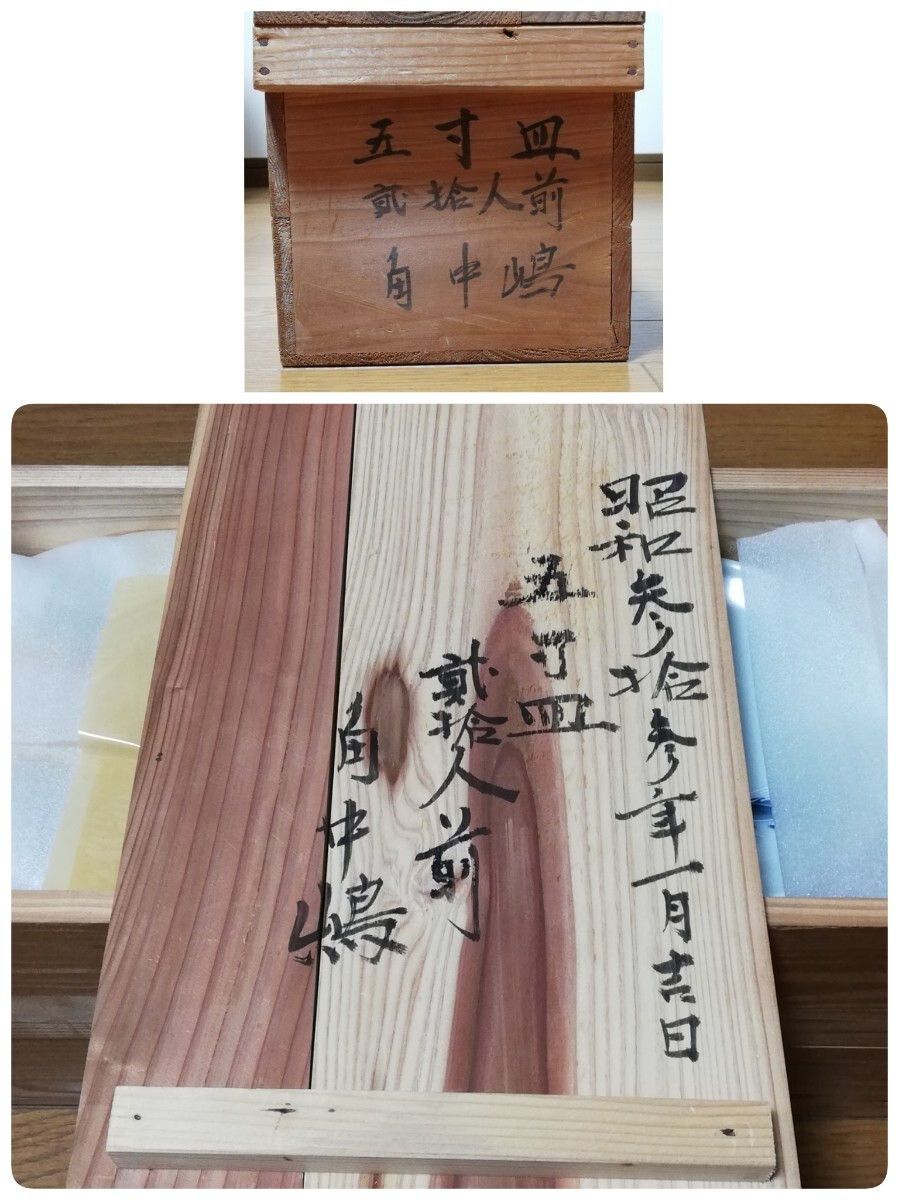 五寸皿
貳拾人前
角中嶋
昭和参拾参年一月吉日
五寸皿
貳拾人前
角中嶋